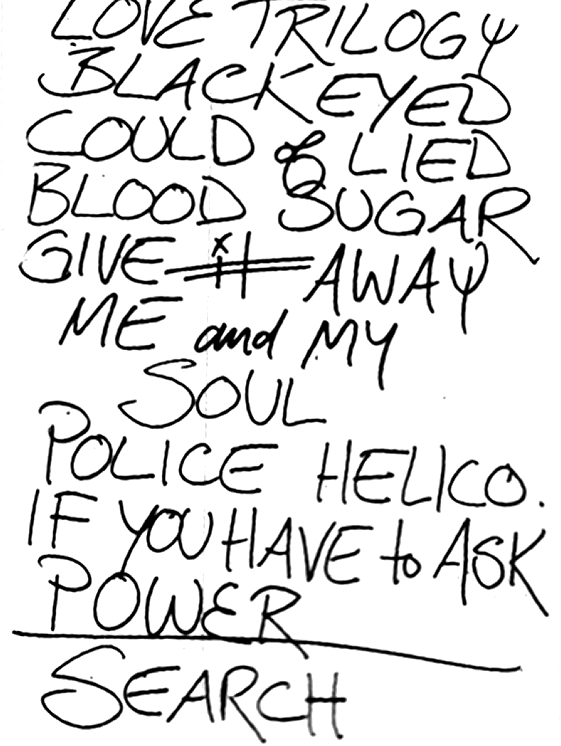 LOVE TRILOGY
BLACKEYED
COULD of LIED
BLOOD SUGAR
GIVE it AWAY
ME and MY
SOUL
POLICE HELICO.
IF YOU HAVE to ASK
POWER
SEARCH